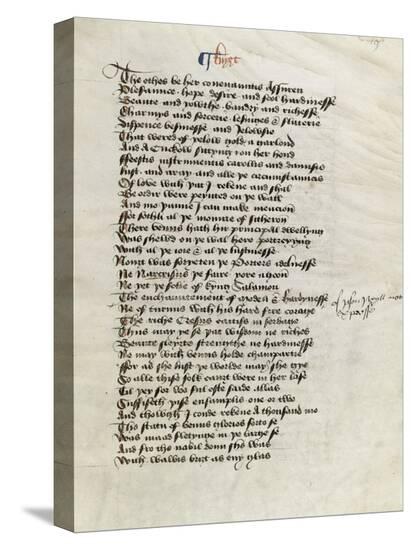 ¶ knygt
The othes þe her couenauntis assuren
Plesaunce hope desire and fool hardinesse
Beaute and yowthe baudry and richesse
Charmys and forcerie lesinges & flaterie
Dispence besinesse and Ielowsie
That wered of yelow gold a garlond
And a Cuckow sittyng on her hond
ffeestis instrumentis carollis and daunsis
lust and aray and alle þe circumstauncis
Of love which þat I rekene and shal
Be ordir were peynted on þe wall
And mo þanne I can make mencion
ffor sothli al þe mounte of Citheron
There venus hath hir principal dwellyng
Was shewd on þe wal here portreying
With al þe ioie & al þe lustinesse
Nouȝt was foryeten þe Porters idelnesse
Ne Narcisus þe faire yore agoon
Ne yet þe folie of kyng Salamon
The enchauntement of medea & hardynesse
Ne of turnus with his hard fire corage
The riche Cresus caitiff in seruage
Thus may ye se þat wisdom ne riches
Beaute sleyȝte strengthe ne hardinesse
Ne may with venus holde champarti
ffor as she lust þe worlde may she gye
So alle these folk cauȝt were in her lase
Til þey for wo ful ofte saide allas
Suffiseth þise ensamplis one or two
And thowgh I coude rekene a thousand mo
The statu of venus glorius forto se
Was maad fletynge in þe large se
And fro the nabil doun she was
With wawis briȝt as eny glas